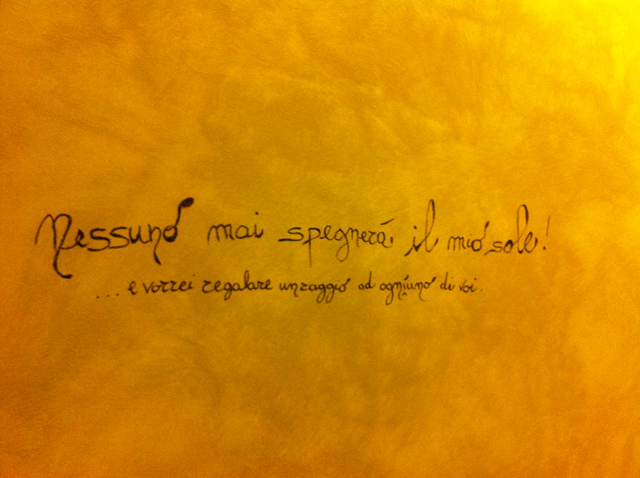 Nessuno mai spegnerà il mio sole!
... e vorrei regalare un raggio ad ogniuno di voi.